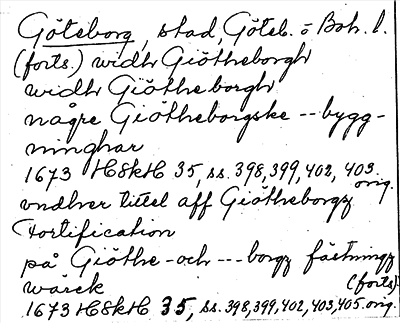 Göteborg, stad, Göteb. o Boh. l.
(forts.) widh Giötheborgh
widh Giötheborgh
någre Giötheborgske -- bygg-
ninghar
1673 HSkH 35, ss. 398, 399, 402, 403.
orig.
vndher tittel aff Giötheborgz
Fortification
på Giöthe - och --- borgz fästningz
wärck (forts.)
1673 HSkH 35, ss. 398, 399, 402, 403, 405. orig.